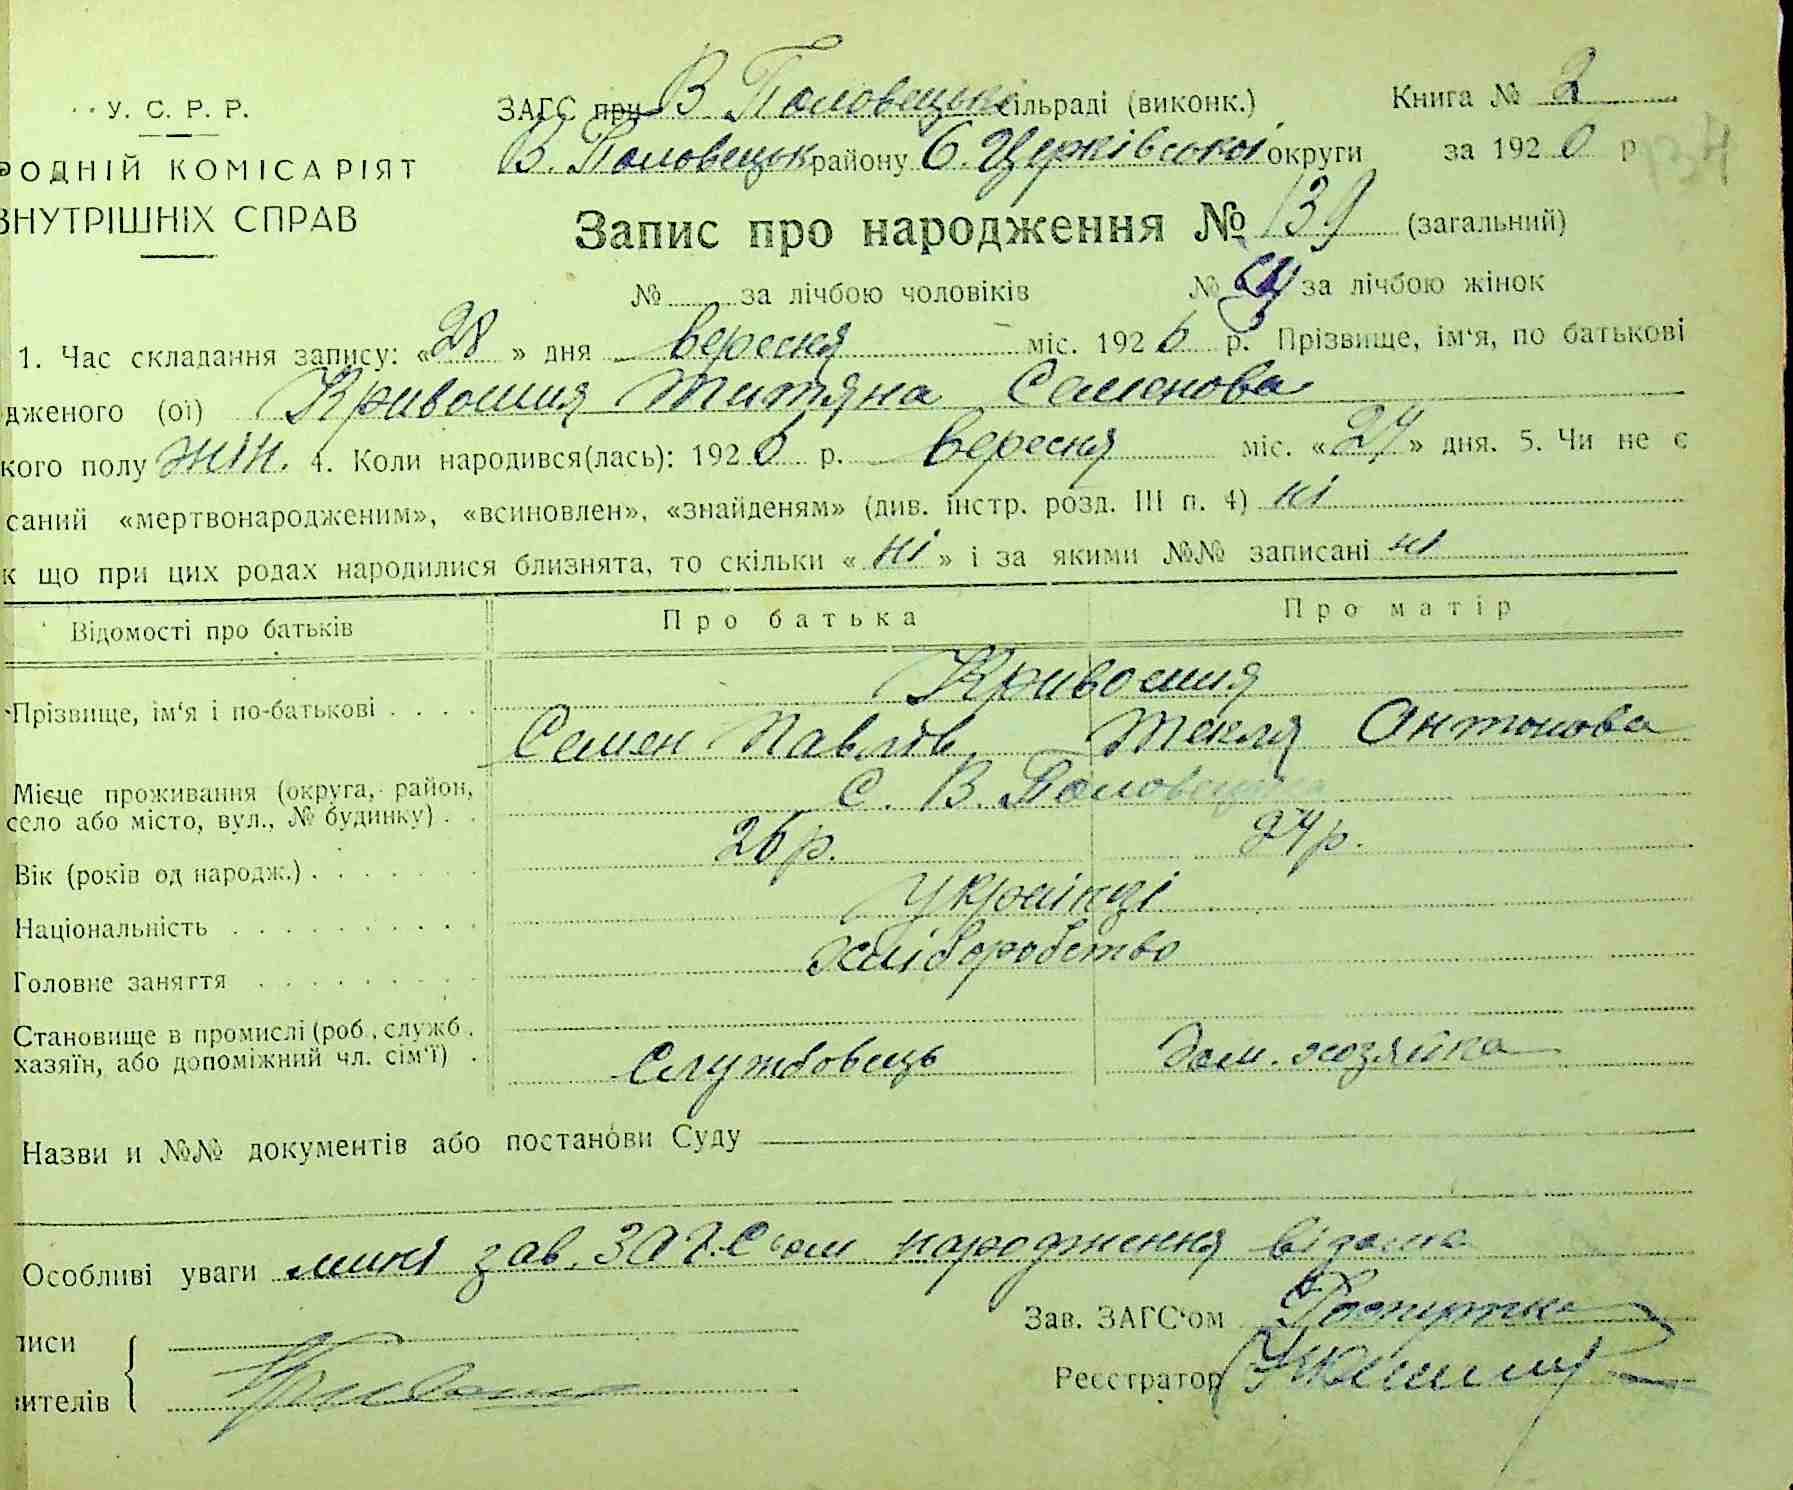 У. С. Р. Р.
РОДНІЙ КОМІСАРІЯТ
ВНУТРІШНІХ СПРАВ
ЗАГС при В Половецькі сільраді (виконк.)
Книга № 2
В. Половецьк району Б. Церківської округи
за 1926 р
134
Запис про народження № 139 (загальний)
№ за лічбою чоловіків № за лічбою жінок
1. Час складання запису: «28» дня вересня міс. 1926 р. Прізвище, ім'я, по батькові
дженого (ої) Кривошия Титяна Семенова
кого полу жін. 4. Коли народився(лась): 1926 р. вересня міс. «24» дня. 5. Чи не є
саний «мертвонародженим», «всиновлен», «знайденям» (див. інстр. розд. III п. 4) ні
к що при цих родах народилися близнята, то скільки «ні» і за якими №№ записані ні
Відомості про батьків Про батька Про матір
Кривошия
Прізвище, ім'я і по-батькові . . . . Семен Павлів Текля Антонова
Місце проживання (округа, район,
село або місто, вул., № будинку) . . с. В. Половецьке
Вік (років од народж.) . . . . . . . 26 р. 24 р.
Національність . . . . . . . . . . українці
Головне заняття . . . . . . . . . хліборобство
Становище в промислі (роб., служб.,
хазяїн, або допоміжний чл. сім'ї) . Службовець Дом. хозяйка
Назви и №№ документів або постанови Суду
Особливі уваги мині зав. ЗАГС'ом народження відома
Зав. ЗАГС'ом
писи
Реєстратор
вителів